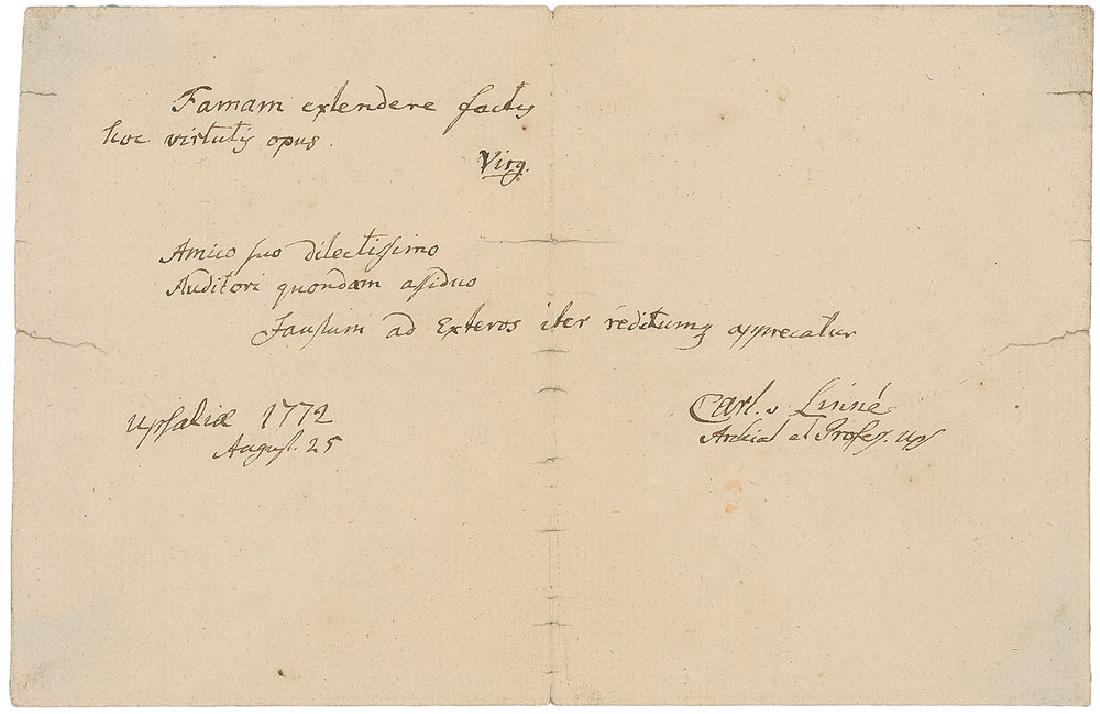 Famam extendere factis
hoc virtutis opus.
Virg.
Amico suo dilectissimo
Auditori quondam assiduo
Faustum ad Exteros iter reditumq apprecatur
Upsaliæ 1772
August. 25
Carl v Linné
Archiat et Profess. Ups